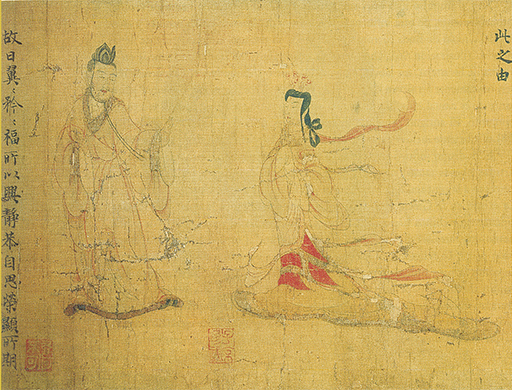 此之由
故曰翼〻矜〻福所以興靜恭自思榮顯所期